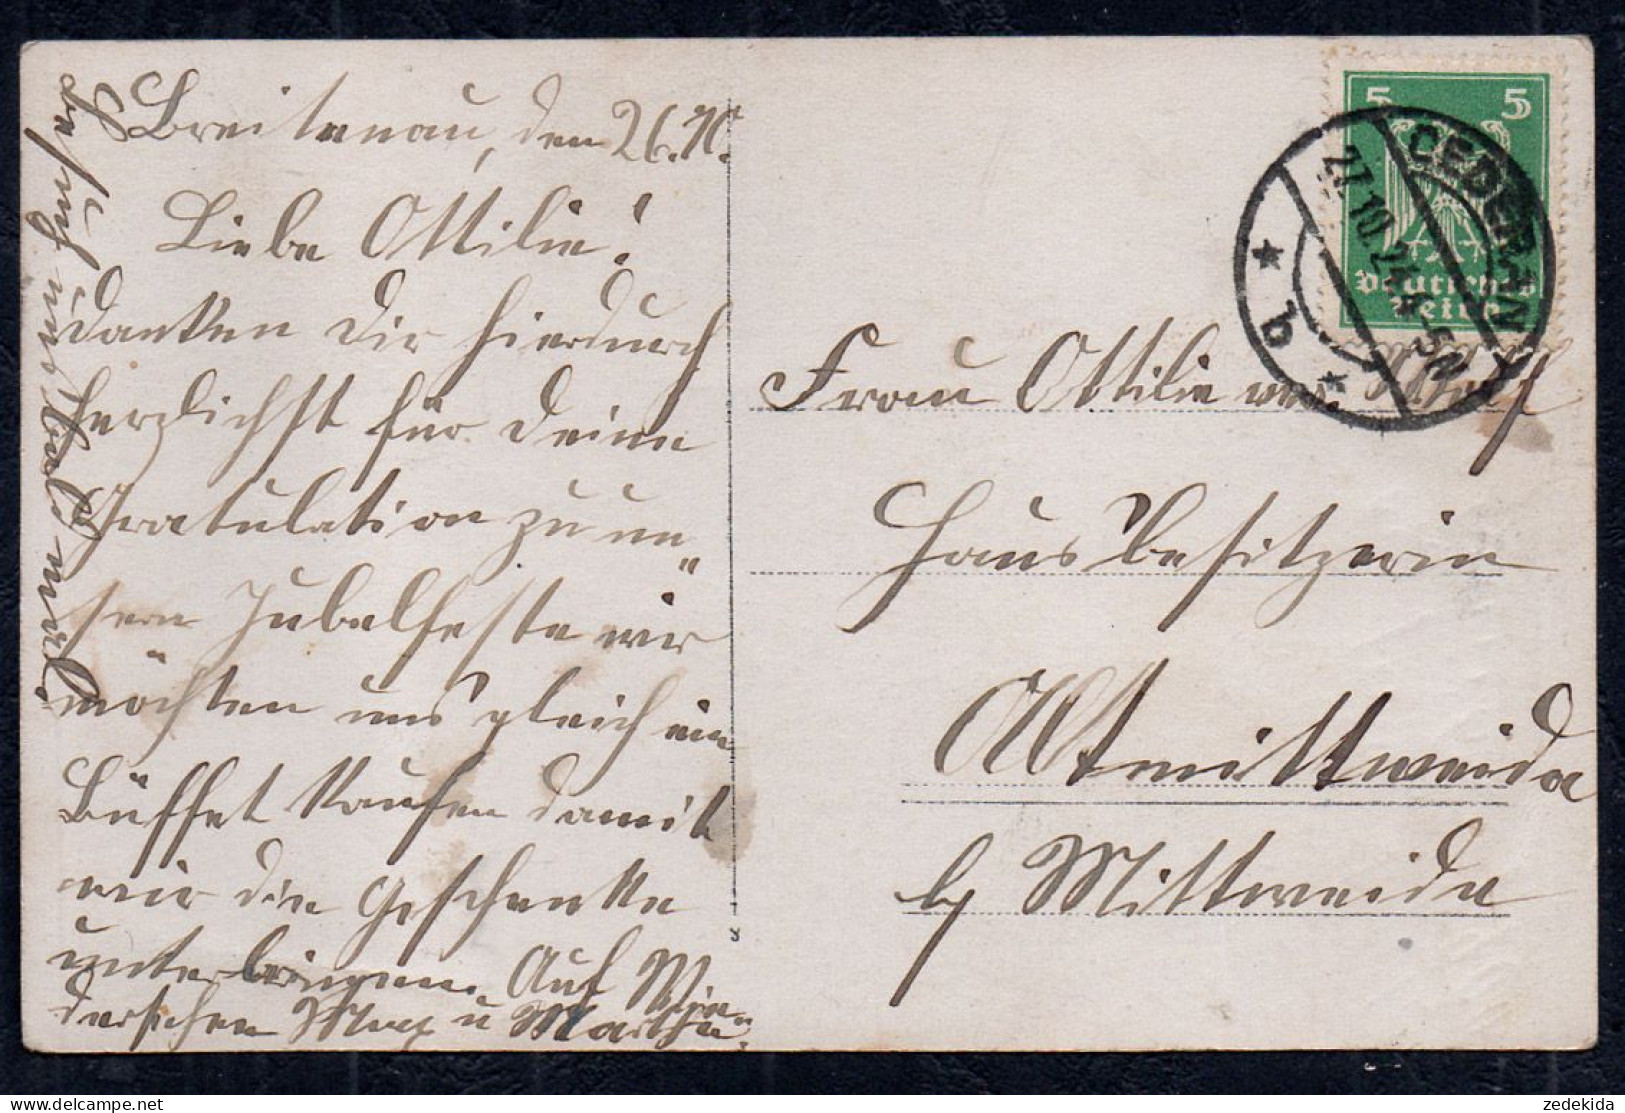 Breitenau, den 26.10.
Liebe Ottilie!
danken Dir hierdurch
herzlichst für Deine
Gratulation zu un=
sern Jubelfeste wir
möchten uns gleich ein
Büffet kaufen damit
wir die Geschenke
unterbringen. Auf Wie=
dersehen Max u Marthe.
Besuch uns bald mal.
5 5
Deutsches
Reich
OEDERAN
27.10.24. 4-5N
* b *
Frau Ottilie verw.
Hausbesitzerin
Altmittweida
b/ Mittweida
zedekida